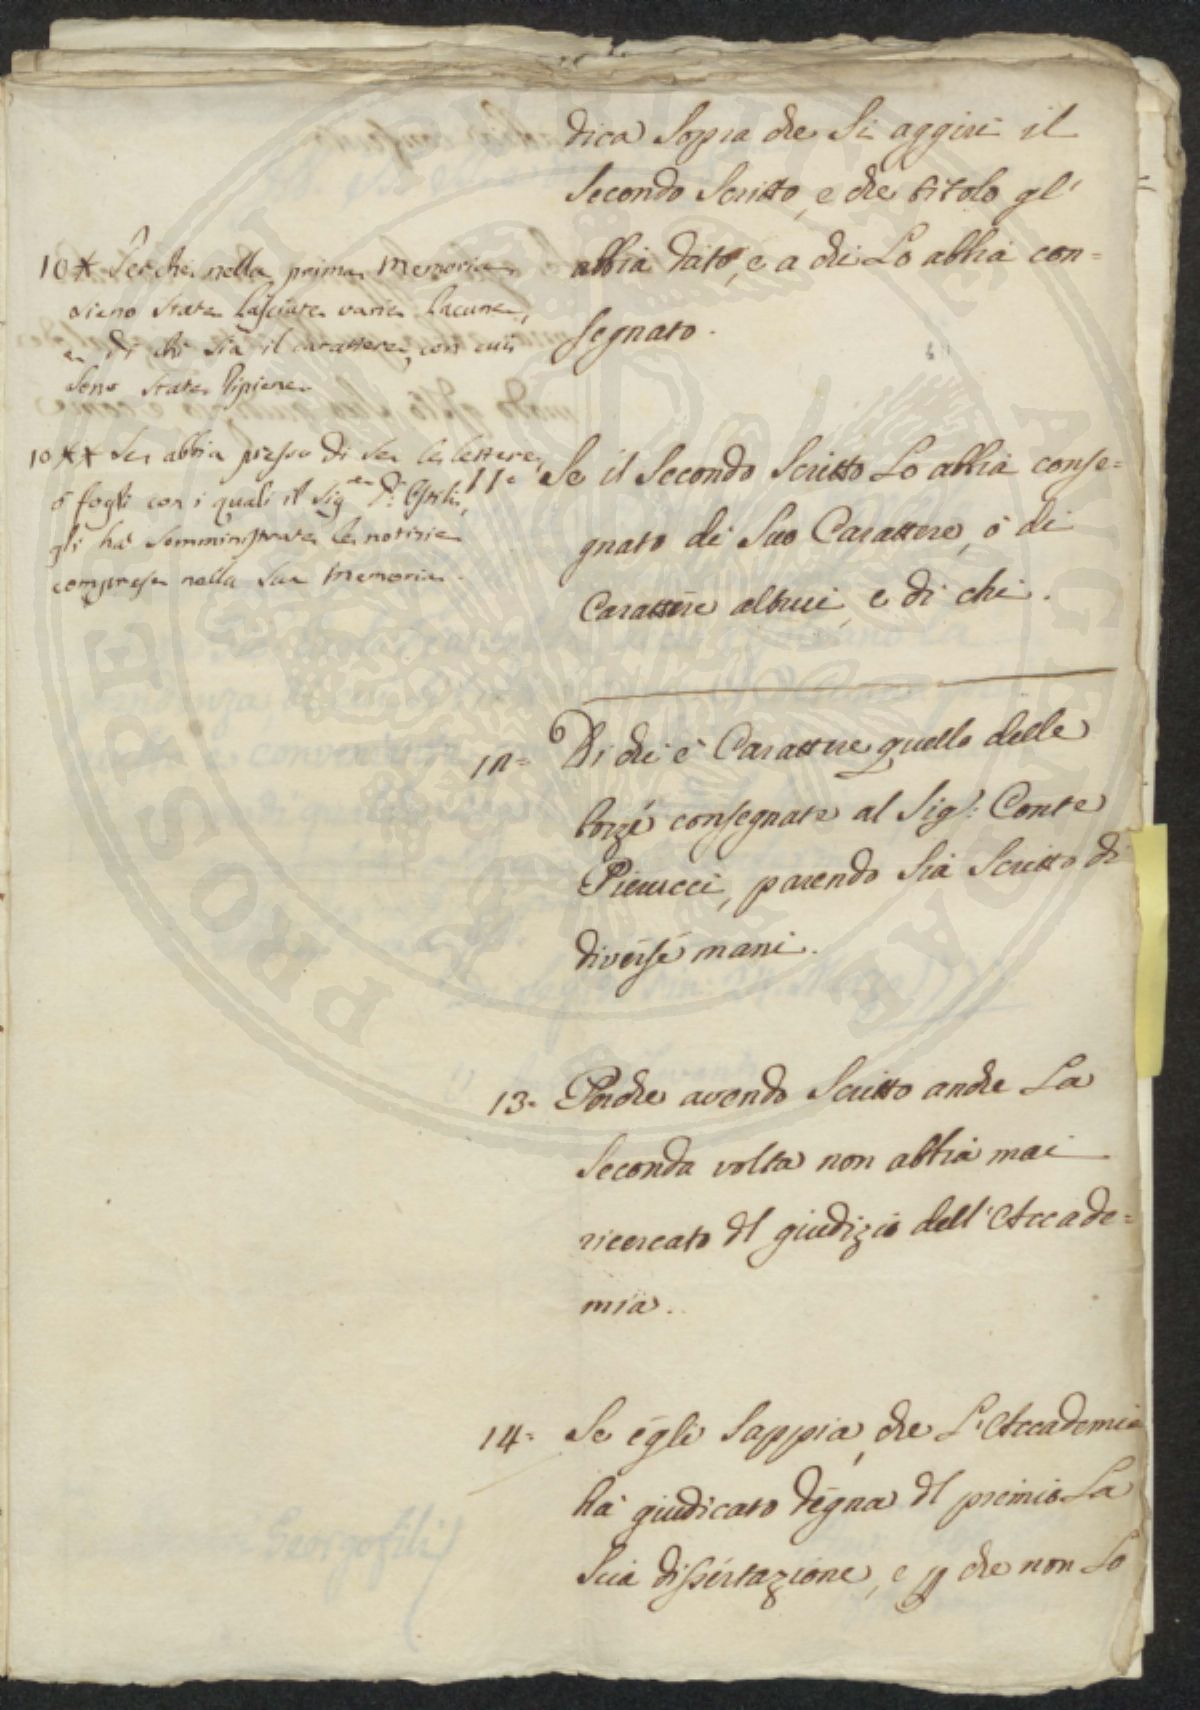 dica sopra che si aggiri il
secondo scritto, e che titolo gl'
abbia dato, e a chi Lo abbia con=
segnato.
10* Perche nella prima Memoria
sieno state lasciate varie lacune,
e di chi sia il carattere, con cui
sono state ripiene
10** Se abbia presso di se le lettere,
ò fogli con i quali il Sig.re D.r
gli hà somministrate le notizie
comprese nella sua Memoria.
11= Se il secondo scritto Lo abbia conse=
gnato di suo Carattere, ò di
Carattere altrui, e di chi.
12= Di chi è Carattere quello delle
consegnate al Sig.r Conte
Pierucci, parendo sia scritto di
diverse mani.
13= Perche avendo scritto anche La
seconda volta non abbia mai
ricercato Il giudizio dell'Accade=
mia.
14= Se egli sappia, che L'Accademia
hà giudicato degna Il premio La
sua dissertazione, e che non Lo
Georgofili
PROSPERITATI PUBLICAE AUGENDAE